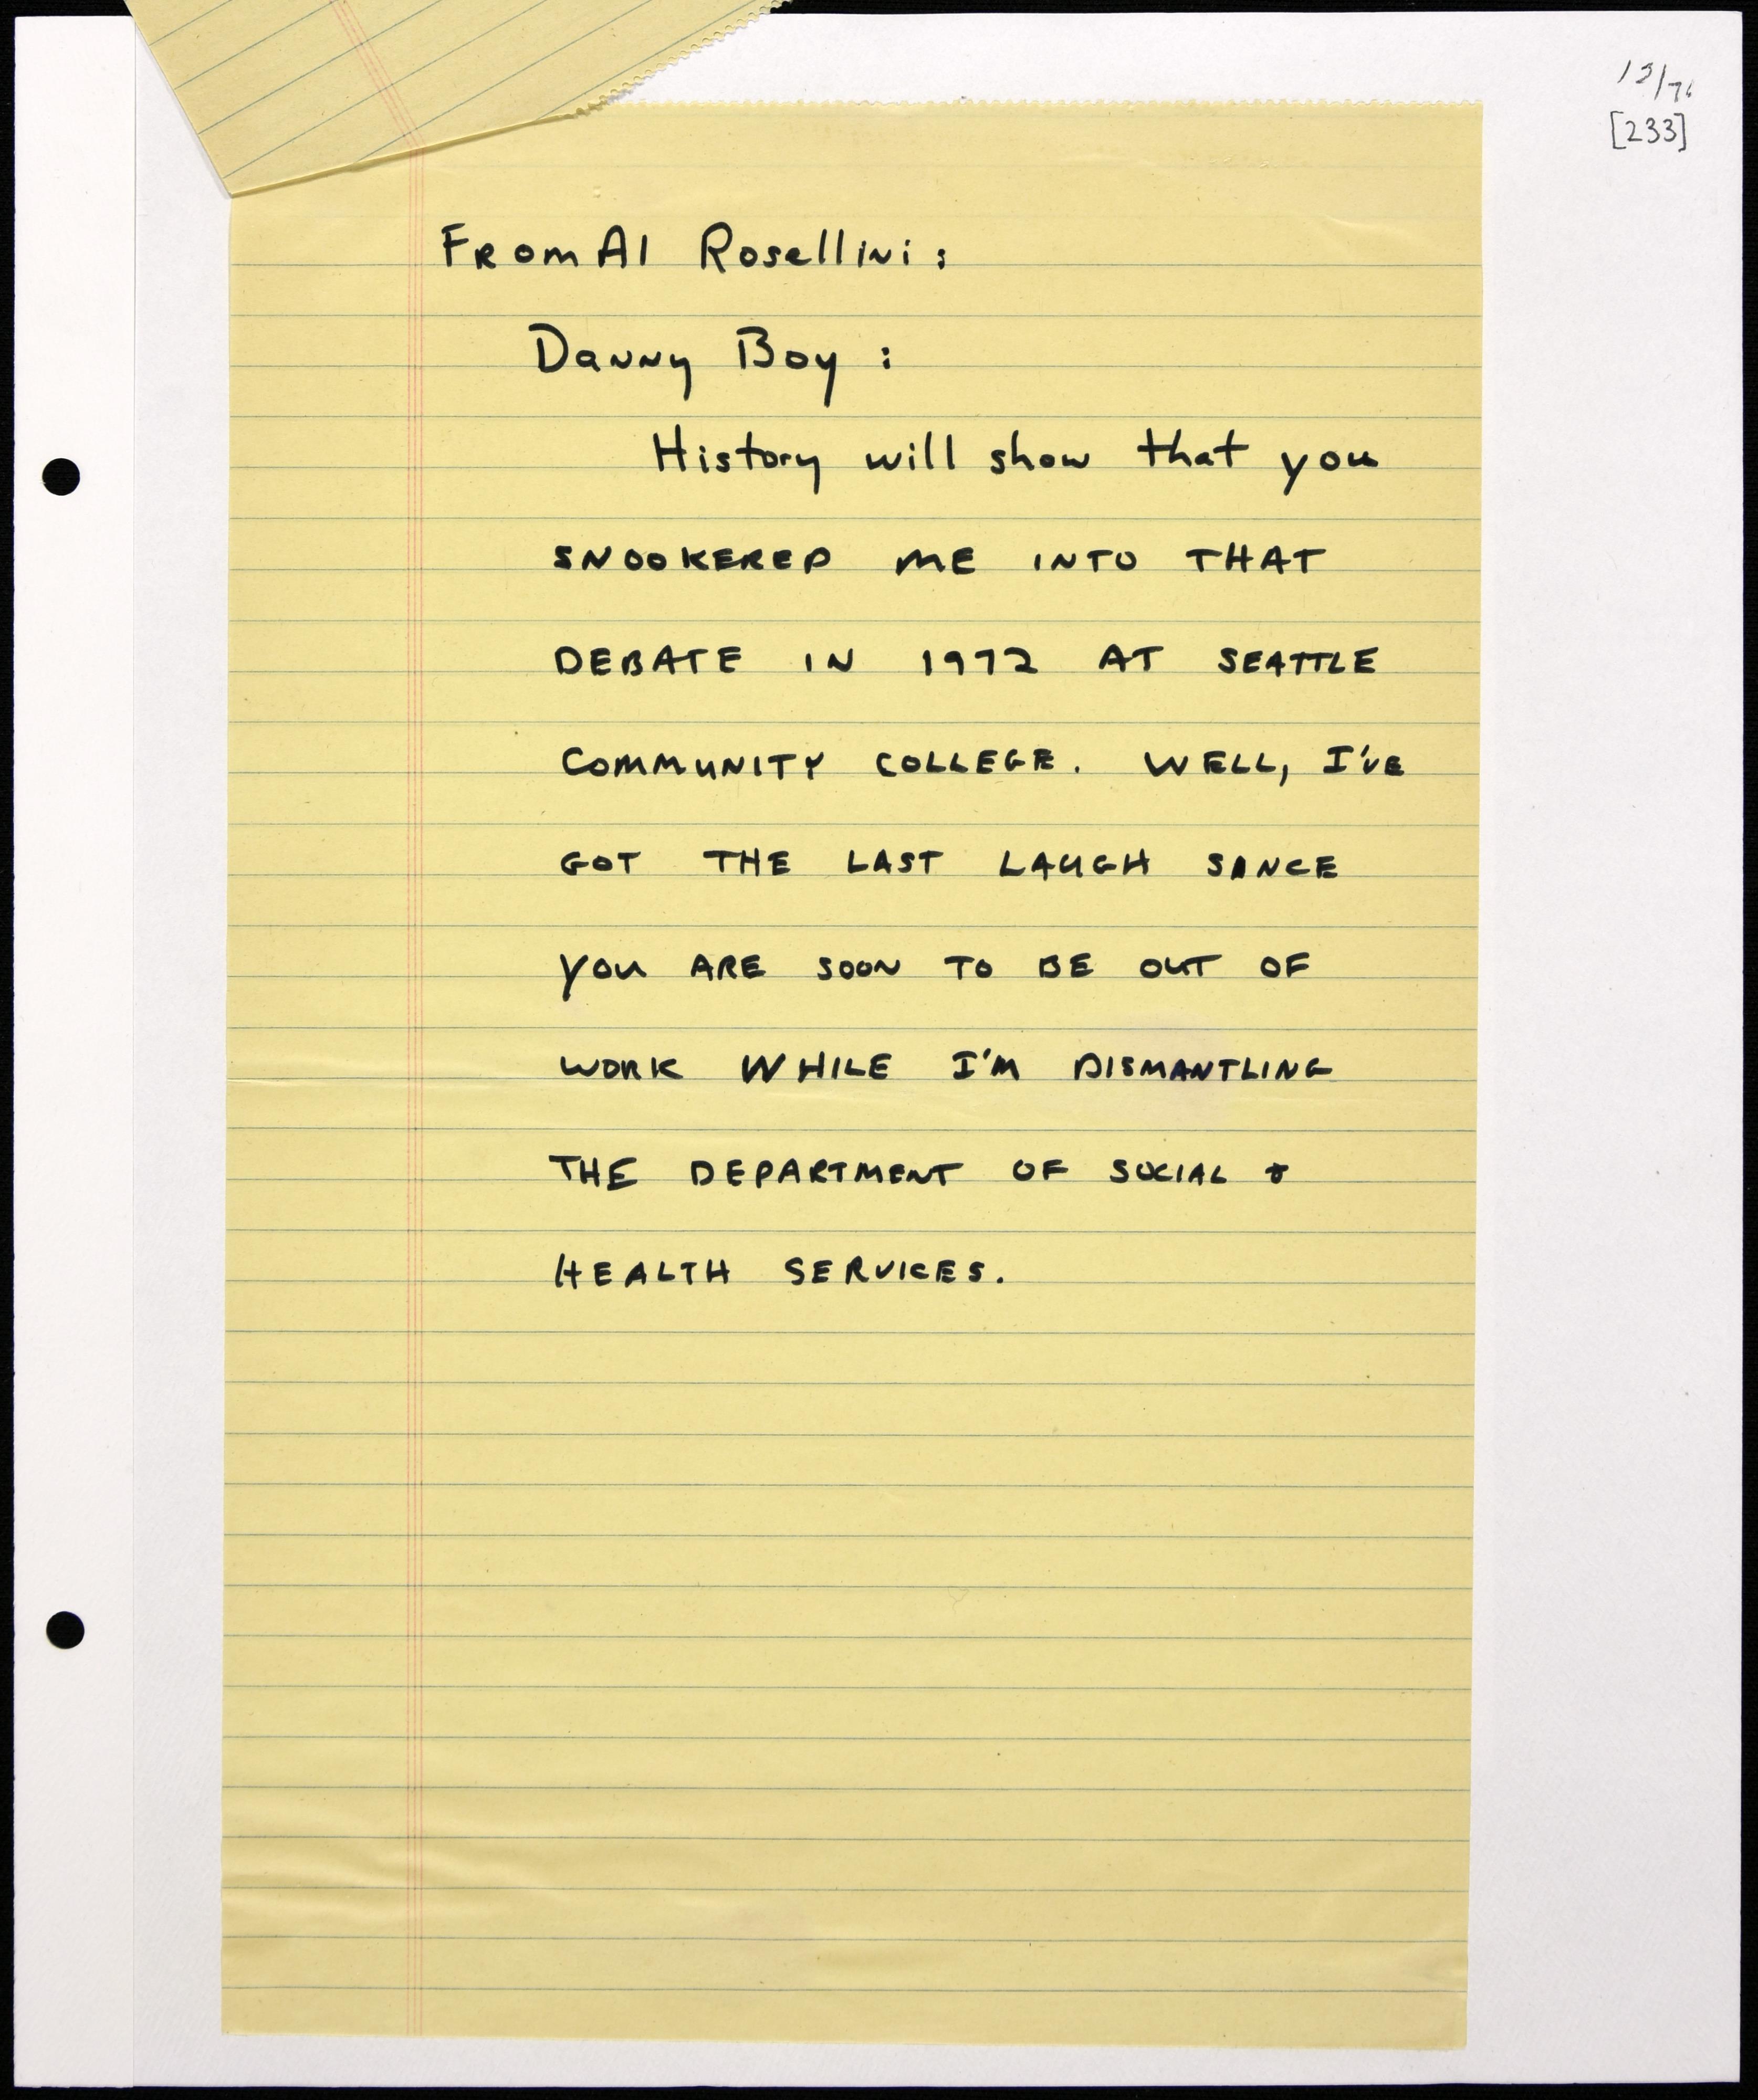 12/76
[233]
From Al Rosellini:
Danny Boy:
History will show that you
SNOOKERED ME INTO THAT
DEBATE IN 1972 AT SEATTLE
COMMUNITY COLLEGE. WELL, I'VE
GOT THE LAST LAUGH SINCE
YOU ARE SOON TO BE OUT OF
WORK WHILE I'M DISMANTLING
THE DEPARTMENT OF SOCIAL &
HEALTH SERVICES.